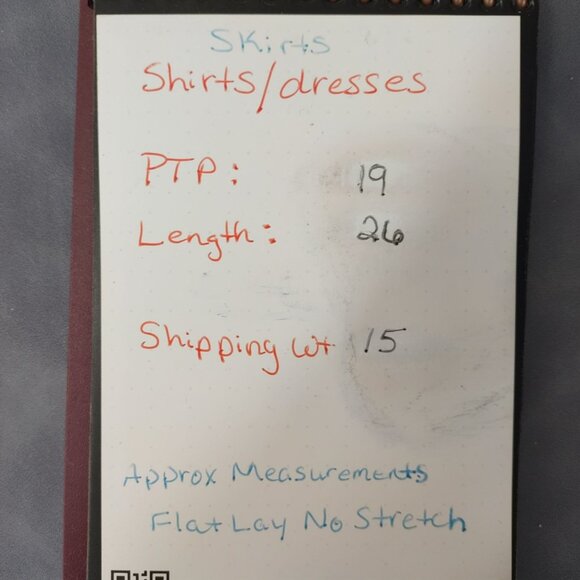 Skirts
Shirts/dresses
PTP: 19
Length: 26
Shipping Wt 15
Approx Measurements
Flat Lay No Stretch